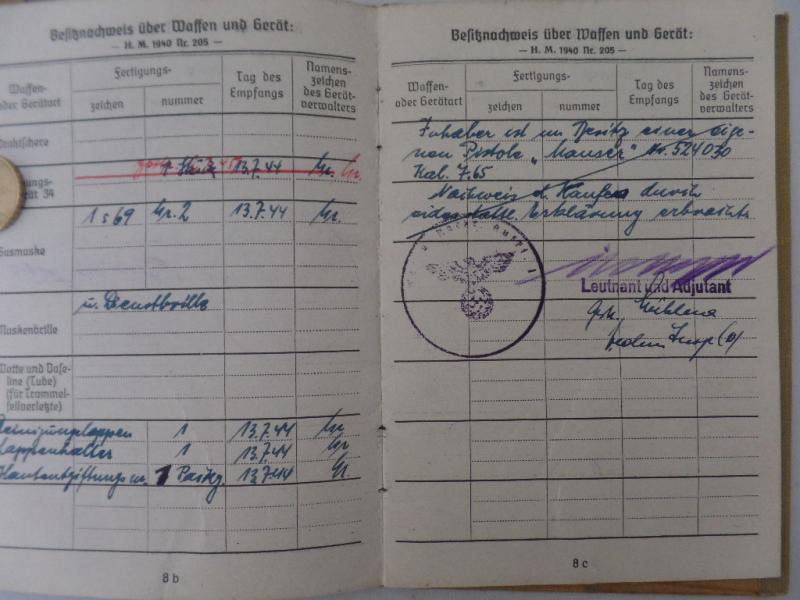 Besitznachweis über Waffen und Gerät:
— H. M. 1940 Nr. 205 —
Waffen-
oder Gerätart
Fertigungs-
zeichen
nummer
Tag des
Empfangs
Namens-
zeichen
des Gerät-
verwalters
Drahtschere
13.7.44 Gr. Gr.
ungs-
rät 34
1 s 69 Gr. 2 13.7.44 Gr.
Gasmaske
u. Dienstbrille
Maskenbrille
Watte und Vase-
line (Tube)
(für Trommel-
fellverletzte)
Reinigungslappen 1 13.7.44 Gr
Lappenhalter 1 13.7.44 Gr
Hautentgiftungsm. 1 Packg 13.7.44 Gr.
8 b
Besitznachweis über Waffen und Gerät:
— H. M. 1940 Nr. 205 —
Waffen-
oder Gerätart
Fertigungs-
zeichen
nummer
Tag des
Empfangs
Namens-
zeichen
des Gerät-
verwalters
Inhaber ist im Besitz einer eige-
nen Pistole „Mauser" Nr. 524030
Kal. 7.65
Nachweis d. Kaufes durch
eidesstattl. Erklärung erbracht.
Leutnant und Adjutant
8 c